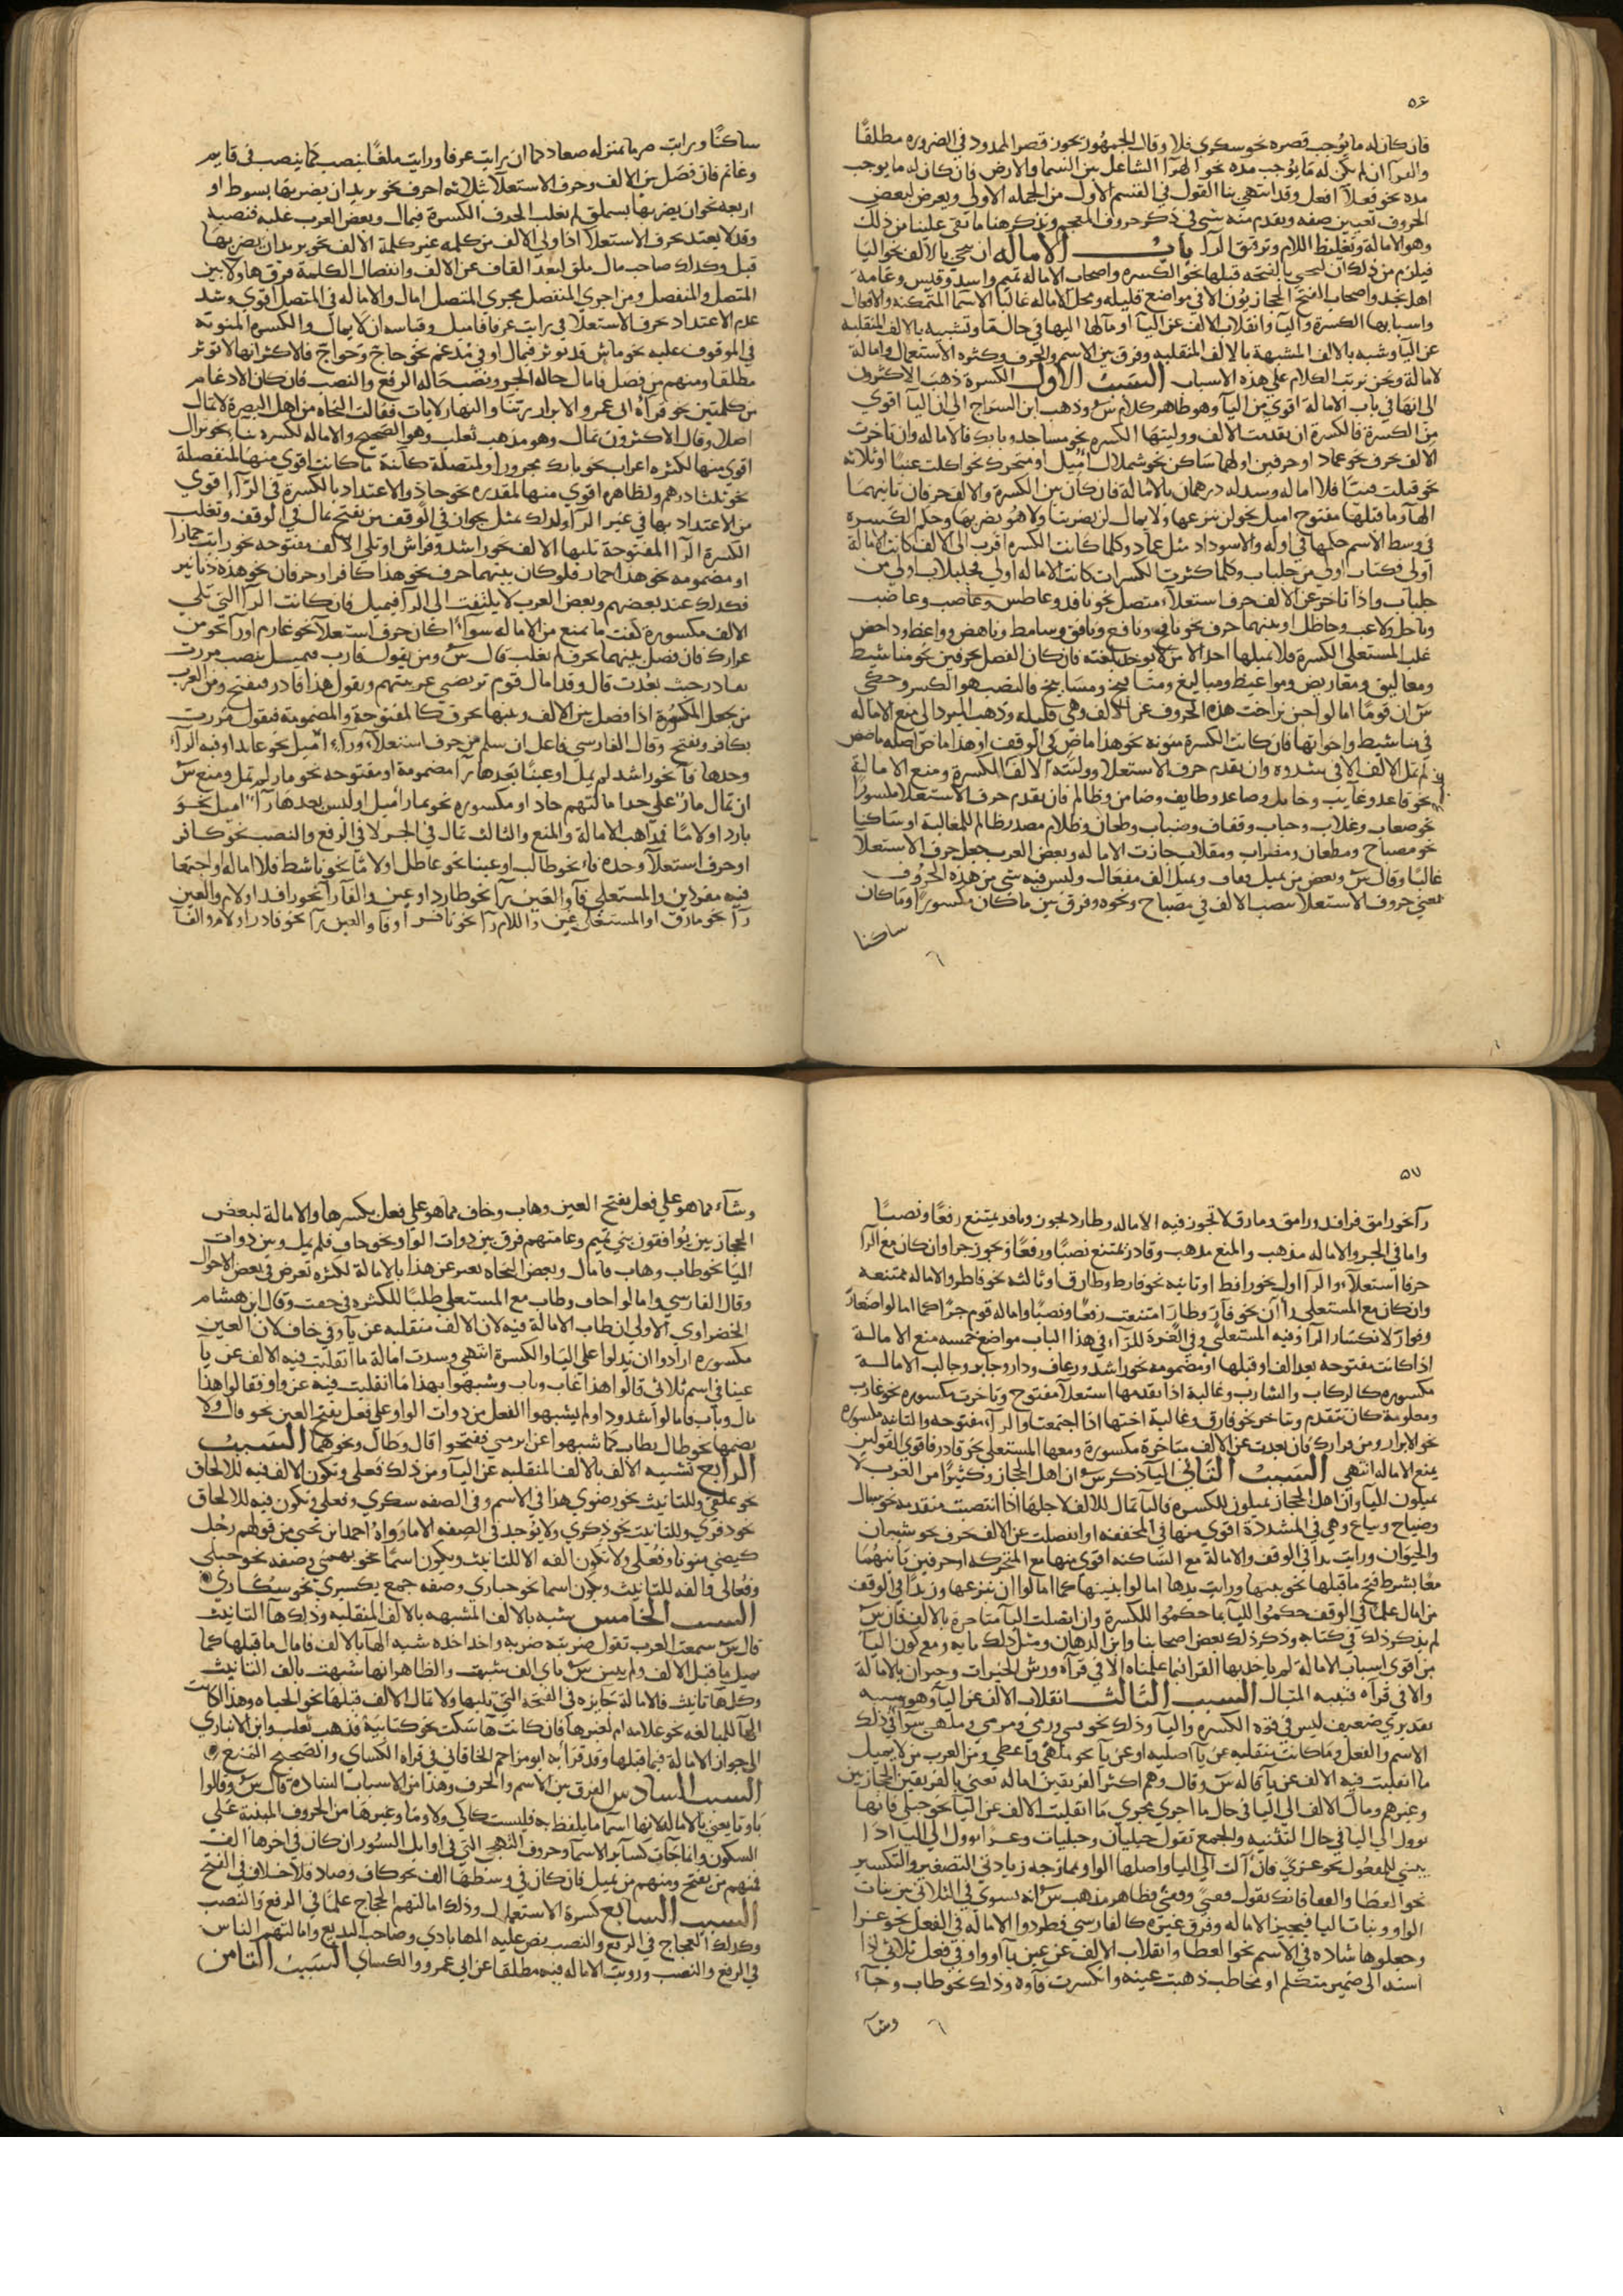 ٥٦
فان كان له ما يوجب قصره نحو سكرى فلا وقال الجمهور تجوز قصر الممدود في الضروره مطلقًا
والفرآ ان لم يكن له ما يوجب مده نحو الهرآ الشاعل بين السما والارض فان كان له ما يوجب
مده نحو فعلآ افعل وقد انتهى بنا القول في القسم الاول من الجمله الاولى ويعرض لبعض
الحروف تغيير صفه ويقدم منه شى في ذكر حروف المعجم ونذكر هنا ما بقى علينا من ذلك
وهو الامالة وتغليظ اللام وترقيق الرآ باب الاماله ان تنحى بالالف نحو اليا
فيلزم من ذلك ان تنحى بالفتحه قبلها نحو الكسره واصحاب الاماله تميم واسد وقيس وعامة
اهل نجد واصحاب الفتح الحجازيون الا في مواضع قليله ومحل الاماله غالبا الاسما المتمكنه والافعال
واسبابها الكسرة واليآ وانقلاب الالف عن اليآ او مآلها اليها في حال ما وتشبيه بالالف المنقلبه
عن اليآ وشبه بالالف المشبهة بالالف المنقلبه وفرق بين الاسم والحرف وكثره الاستعمال وامالة
لامالة ونحن نرتب الكلام على هذه الاسباب السبب الاول الكسرة ذهب الاكثرون
الى انها في باب الامالة اقوى من اليآ وهو ظاهر كلام س وذهب ابن السراج الى ان اليآ اقوى
من الكسرة فالكسرة ان تقدمت الالف ووليتها الكسره نحو مساجد وبابك فالاماله وان تاخرت
الالف بحرف نحو عماد او حرفين اولهما ساكن نحو شملال اميل او متحرك نحو اكلت عنبًا او ثلاثه
نحو فتلت قنبًا فلا اماله وسد له درهمان بالامالة فان كان بين الكسرة والالف حرفان ثانيهما
الهآ وما قبلها مفتوح اميل نحو لن ينزعها ولا يمال لن يضربنا ولا هو يضربها وحكم الكسره
في وسط الاسم حكمها في اوله والاسوداد مثل عماد وكلما كانت الكسره اقرب الى الالف كانت الامالة
اولى فكتاب اولى من جلباب وكلما كثرت الكسرات كانت الاماله اولى فجلبلاب اولى من
جلباب واذا تاخر عن الالف حرف استعلآ متصل نحو نافد وعاطس وعاصب وعاضب
وناحل ولاعب وحاظل او بينهما حرف نحو نافي ونافخ ونافق وسامط وناهض وواعظ وداحض
غلب المستعلى الكسرة فلا تميلها احد الا من لا يوخذ بلغته فان كان الفصل بحرفين نحو مناشيط
ومعاليق ومعاريض ومواعيظ ومباليغ ومنافيخ ومساليخ فالنصب هو الكسر وحكى
س ان قومًا امالوا حين تراخت هذه الحروف عن الالف وهى قليله وذهب المبرد الى منع الاماله
في مناشيط واخواتها فان كانت الكسرة منونه نحو هذا ماضٍ في الوقف او هذا ماضّ اصله ماضض
لم تمل الالف الا في شذوه وان تقدم حرف الاستعلا ووليته الالف الكسرة ومنع الامالة
نحو قاعد وغايب وخامل وصاعد وطايف وضامن وظالم فان تقدم حرف الاستعلا مكسورًا
نحو صعاب وغلاب وحباب وقفاف وضباب وطعان وظلام مصدر ظالم للمغالبة او ساكنا
نحو مصباح ومطعان ومضراب ومقلاب جازت الاماله وبعض العرب يجعل حرف الاستعلا
غالبًا وقال س وبعض من يميل يفاف ويميل الف مفعال وليس فيه شى من هذه الحروف
يعنى حروف الاستعلا بنصب الالف في مصباح ونحوه وفرق بين ما كان مكسورًا وما كان
ساكنا
ساكنًا ورايت عرما بمنزله صعاد كما ان رايت عرفا ورايت ملغًا ينصب كما ينصب في قايم
وغانم فان فصل بين الالف وحرف الاستعلآ بثلاثه احرف نحو يريد ان يضربها بسوط او
اربعه نحو ان يضربها بسملق لم يغلب الحرف الكسرة فيمال وبعض العرب غلبه فنصب
وقد لا يعتد بحرف الاستعلآ اذا ولى الالف من كلمه غير كلمة الالف نحو يريد ان يضربها
قبل وكذلك صاحب مال ملق لبعد القاف عن الالف وانفصال الكلمة فرق هاولا بين
المتصل والمنفصل ومن اجرى المنفصل مجرى المتصل امال والاماله في المتصل اقوى وشذ
عدم الاعتداد بحرف الاستعلا في رايت عرفا فاميل وقياسه ان لا يمال والكسره المنونه
في الموقوف عليه نحو ماش قد توثر فيمال او في مدغم نحو حاجّ وحواجّ فالاكثر انها لا توثر
مطلقا ومنهم من فصل فامال حاله الجر ونصب حاله الرفع والنصب فان كان الادغام
من كلمتين نحو قرآة ابى عمرو والابرار ربنا والنهار لايات فقالت النحاه من اهل البصرة لا تمال
اصلا وقال الاكثرون تمال وهو مذهب ثعلب وهو الصحيح والاماله لكسره بناء نحو نزال
اقوى منها لكسره اعراب نحو بابك مجرور او لمتصلة كآئنة ما كانت اقوى منها لمنفصلة
نحو ثلثا درهم ولظاهره اقوى منها لمقدره نحو حادّ والاعتداد بالكسرة في الرآء اقوى
من الاعتداد بها في غير الرآ ولذلك مثل بجوان في الوقف من يفتح بمال في الوقف وتغلب
الكسرة الرآ المفتوحة تليها الالف نحو راشد وفراش او تلى الالف مفتوحه نحو رايت حمارا
او مضمومه نحو هذا حمار فلو كان بينهما حرف نحو هذا كافر او حرفان نحو هذه دنانير
فكذلك عند بعضهم وبعض العرب لا يلتفت الى الرآ فيميل فان كانت الرآ التى تلى
الالف مكسورة كفت ما يمنع من الاماله سواء اكان حرف استعلآ نحو غارم او رآ نحو من
عرارك فان فصل بينهما بحرف لم يغلب قال س ومن يقول قارب فيميل ينصب مررت
بقادر حيث بعدت قال وقد امال قوم ترتضى عربيتهم ويقول هذا قادر فيفتح ومن العرب
من يجعل المكسورة اذا فصل بين الالف وبينها بحرف كالمفتوحة والمضمومة فيقول مررت
بكافر ويفتح وقال الفارسى فاعل ان سلم من حرف استعلآء ورآء اميل نحو عابد او فيه الرآء
وحدها فآ نحو راشد لم يمل او عينًا بعدها رآ مضمومة او مفتوحه نحو مار لم تمل ومنع س
ان تمال مارّ على حد امالتهم حاد او مكسوره نحو بمار اميل او ليس بعدها رآ اميل نحو
بارد او لامًا فمذاهب الامالة والمنع والثالث تمال في الجر لا في الرفع والنصب نحو كافر
او حرف استعلآ وحده فآء نحو طالب او عينا نحو عاطل او لامًا نحو ناشط فلا اماله او اجتمعا
فيه مفترقين والمستعلى فآ والعين رآ نحو طارد او عين والفآ رآ نحو رافد او لام والعين
رآ نحو مارق او المستعلى عين واللام رآ نحو ناقر او فآ والعين رآ نحو قادر او لام والفآ
٥٧
رآ نحو رامق فراقد ورامق ومارق لا تجوز فيه الاماله وطارد لجوز وناقر يمتنع رفعًا ونصبًا
واما في الجر والاماله مذهب والمنع مذهب وقادر تمتنع نصبًا ورفعًا وتجوز جرا وان كان مع الرآ
حرفا استعلآء والرآ اول نحو رافط او ثانيه نحو فارط وطارق او ثالثه نحو قاطر والاماله ممتنعه
وان كان مع المستعلى رآآن نحو قارّ وطارّ امتنعت رفعًا ونصبًا واماله قوم جرًا كما امالوا صغارّ
وقوارّ لانكسار الرآ وفيه المستعلى وفي الغرة للرآء في هذا الباب مواضع خمسه منع الامالة
اذا كانت مفتوحه بعد الف او قبلها او مضمومه نحو راشد ورعاف ودار وجابر وجالب الامالة
مكسوره كالركاب والشارب وغالبة اذا تقدمها استعلآ مفتوح وتاخرت مكسوره نحو غارب
ومغلوبة كان متقدم وتاخر نحو فارق وغالبة اختها اذا اجتمعتا والرآء مفتوحه والثانيه مكسوره
نحو الابرار ومن قرارك فان بعدت عن الالف متاخرة مكسورة ومعها المستعلى نحو قادر فاقوى القولين
يمنع الاماله انتهى السبب الثانى اليآ ذكر س ان اهل الحجاز وكثيرًا من العرب لا
يميلون لليآ وان اهل الحجاز يميلون للكسره فاليآ تمال للالف لاجلها اذا اتصلت متقدمه نحو سيال
وضياح وبياع وهى في المشددة اقوى منها في المخففه او انفصلت عن الالف بحرف نحو شيبان
والحيوان ورايت يدا في الوقف والامالة مع الساكنه اقوى منها مع المتحركه او حرفين ثانيهما
هآ بشرط فتح ما قبلها نحو بينها ورايت يدها امالوا بينها كما امالوا ان ينزعها وزيدًا في الوقف
من امال علمًا في الوقف حكموا لليآ بما حكموا للكسرة وان اتصلت اليآ متاخرة بالالف فان س
لم يذكر ذلك في كتابه وذكر ذلك بعض اصحابنا وابن الدهان ومثل ذلك بايه ومع كون اليآ
من اقوى اسباب الامالة لم ياخذ بها القرا فيما علمناه الا في قرآه ورش الخيرات وحيران بالامالة
والا في قرآه قتيبه الميال السبب الثالث انقلاب الالف عن اليآ وهو سبب
تقديرى ضعيف ليس في قوه الكسره واليآ وذلك نحو يسرى ورمى ومرمى وملهى سوآ في ذلك
الاسم والفعل وما كانت منقلبه عن يآ اصليه او عن يآ نحو ملهى واعطى ومن العرب من لا يميل
ما انقلبت فيه الالف عن يآ قاله س وقال وهم اكثر الفريقين اماله يعنى بالفريقين الحجازيين
وغيرهم ومآل الالف الى اليا في حال ما اجرى مجرى ما انقلبت الالف عن اليآ نحو حبلى فانها
توول الى اليا في حال التثنيه والجمع تقول حبليان وحبليات وغزا توول الى اليا اذا
بنى للمفعول نحو غزى فان آلت الى اليا واصلها الواو بممازجه زيادتى التصغير والتكسير
نحو العطا والقفا فانك تقول قفىّ وقفىّ وظاهر مذهب س انه يسوى في الثلاثى بين بنات
الواو وبنات اليا فيجيز الاماله وفرق غيره كالفارسى فطردوا الاماله في الفعل نحو غزا
وجعلوها شاذه في الاسم نحو العطا وانقلاب الالف عن عين يآ او واو في فعل ثلاثى اذا
اسند الى ضمير متكلم او مخاطب ذهبت عينه وانكسرت فآوه وذلك نحو طاب وجآء
وشآ
وشآء مما هو على فعل بفتح العين وهاب وخاف مما هو على فعل بكسرها والامالة لبعض
الحجازيين يوافقون بنى تميم وعامتهم فرق بين ذوات الواو نحو خاف فلم يمل وبين ذوات
اليا نحو طاب وهاب فامال وبعض النحاه يعبر عن هذا بالامالة لكسره تعرض في بعض الاحوال
وقال الفارسى وامالوا خاف وطاب مع المستعلى طلبًا للكسره في خفت وقال ابن هشام
الخضراوى الاولى ان طاب الامالة فيه لان الالف منقلبه عن يآ وفي خاف لان العين
مكسوره ارادوا ان يدلوا على اليآ والكسرة انتهى وسدت امالة ما انقلبت فيه الالف عن يآ
عينا في اسم ثلاثى قالوا هذا غاب وباب وشبهوا بهذا ما انقلبت فيه عن واو فقالوا هذا
مال وباب فامالوا شذوذا ولم يشبهوا الفعل من ذوات الواو على فعل بفتح العين نحو قال ولا
بضمها نحو طال بطاب كما شبهوا عن ابرمسى ففتحوا قال وطال ونحوهما السبب
الرابع تشبيه الالف بالالف المنقلبه عن اليآ ومن ذلك فعلى وتكون الالف فيه للالحاق
نحو علقى وللتانيث نحو رضوى هذا في الاسم وفي الصفه سكرى وفعلى وتكون فيه للالحاق
نحو دفرى وللتانيث نحو ذكرى ولا توجد في الصفه الا ما رواه احمد ابن يحيى من قولهم رجل
كيصى منونا وفعلى ولا تكون الفه الا للتانيث ويكون اسمًا نحو بهمى وصفه نحو حبلى
وفعالى والفه للتانيث ويكون اسما نحو حبارى وصفه جمع تكسير نحو سكارى
السبب الخامس شبه بالالف المشبهه بالالف المنقلبه وذلك ها التانيث
قال س سمعت العرب تقول ضربت ضربه واخذ اخذه شبه الهآ بالالف فامال ما قبلها كما
يميل ما قبل الالف ولم يبين س باى الف شبهت والظاهر انها شبهت بالف التانيث
وكل ها تانيث فالامالة جايزه في الفتحة التى تليها ولا تمال الالف قبلها نحو الحياه وهذا اكانت
الهآ للمبالغه نحو علامه ام لغيرها فان كانت ها سكت نحو كتابيه فذهب ثعلب وابن الانبارى
الى جواز الامالة فيما قبلها وقد قرا به ابو مزاحم الخاقانى في قراه الكساى والصحيح المنع
السبب السادس الفرق بين الاسم والحرف وهذا من الاسباب الشاذه قال س وقالوا
با وتا يعنى بالاماله لانها اسما ما يلفظ به فليست كالى ولا وما وغيرها من الحروف المبنية على
السكون وانما جات كسآير الاسما وحروف التهجى التى في اوايل السور ان كان في اخرها الف
فمنهم من يفتح ومنهم من يميل فان كان في وسطها الف نحو كاف وصاد فلا خلاف في الفتح
السبب السابع كسرة الاستعمال وذلك امالتهم الحجاج علمًا في الرفع والنصب
وكذلك العجاج في الرفع والنصب نص عليه المهابادى وصاحب البديع وامالتهم الناس
في الرفع والنصب ورويت الاماله فيه مطلقا عن ابى عمرو والكساى السبب الثامن